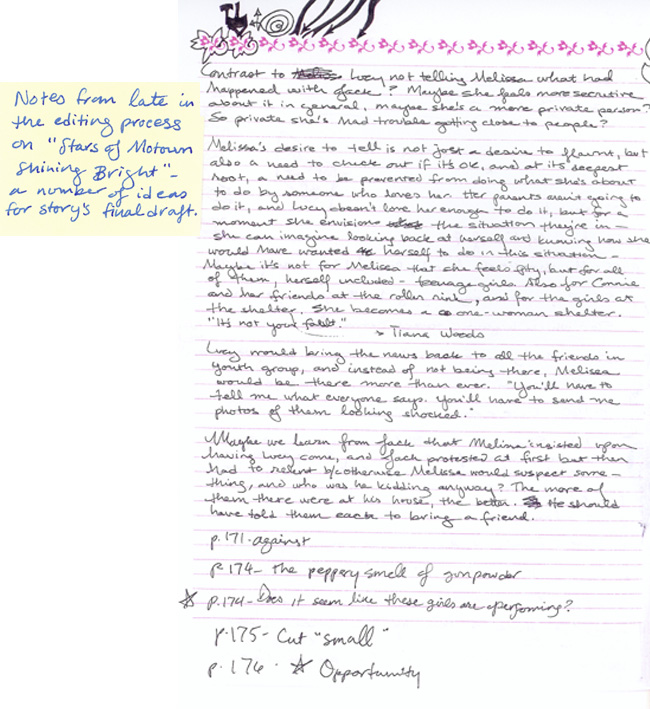 Notes from late in
the editing process
on "Stars of Motown
Shining Bright"-
a number of ideas
for story's final draft.
Contrast to Lucy not telling Melissa what had
happened with Jack? Maybe she feels more secretive
about it in general, maybe she's a more private person?
So private she's had trouble getting close to people?
Melissa's desire to tell is not just a desire to flaunt, but
also a need to check out if it's OK, and at its deepest
root, a need to be prevented from doing what she's about
to do by someone who loves her. Her parents aren't going to
do it, and Lucy doesn't love her enough to do it, but for a
moment she envisions the situation they're in –
she can imagine looking back at herself and knowing how she
would have wanted herself to do in this situation –
Maybe it's not for Melissa that she feels pity, but for all
of them, herself included – teenage girls. Also for Connie
and her friends at the roller rink, and for the girls at
the shelter. She becomes a one-woman shelter.
"It's not your fault."
→ Tiana Woods
Lucy would bring the news back to all the friends in
youth group, and instead of not being there, Melissa
would be there more than ever. "You'll have to
tell me what everyone says. You'll have to send me
photos of them looking shocked."
Maybe we learn from Jack that Melissa insisted upon
having Lucy come, and Jack protested at first but then
had to relent b/c otherwise Melissa would suspect some–
thing, and who was he kidding anyway? The more of
them there were at his house, the better. He should
have told them each to bring a friend.
p.171-against
p.174- the peppery smell of gunpowder
☆ p.174- Does it seem like these girls are performing?
p.175- Cut "small"
p.176. ☆ Opportunity